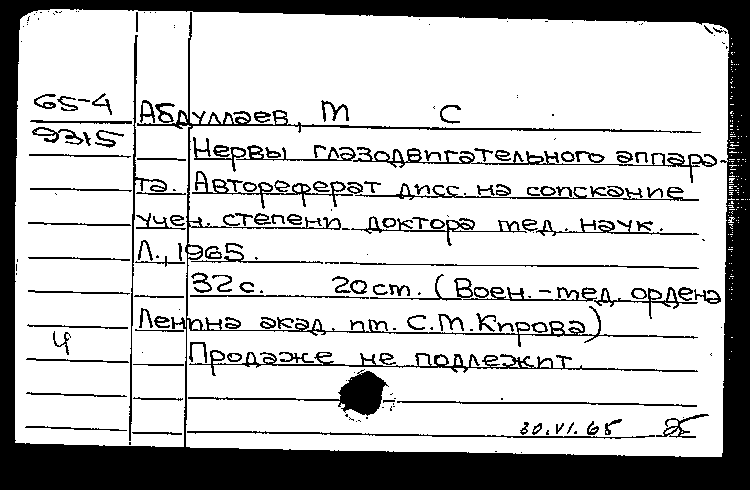 65-4
9315
Абдуллаев, М С
Нервы глазодвигательного аппара-
та. Автореферат дисс. на соискание
учен. степени доктора мед. наук.
Л., 1965.
32 с. 20 см. (Воен.-мед. ордена
Ленина акад. им. С.М.Кирова)
Ч
Продаже не подлежит.
30.VI.65